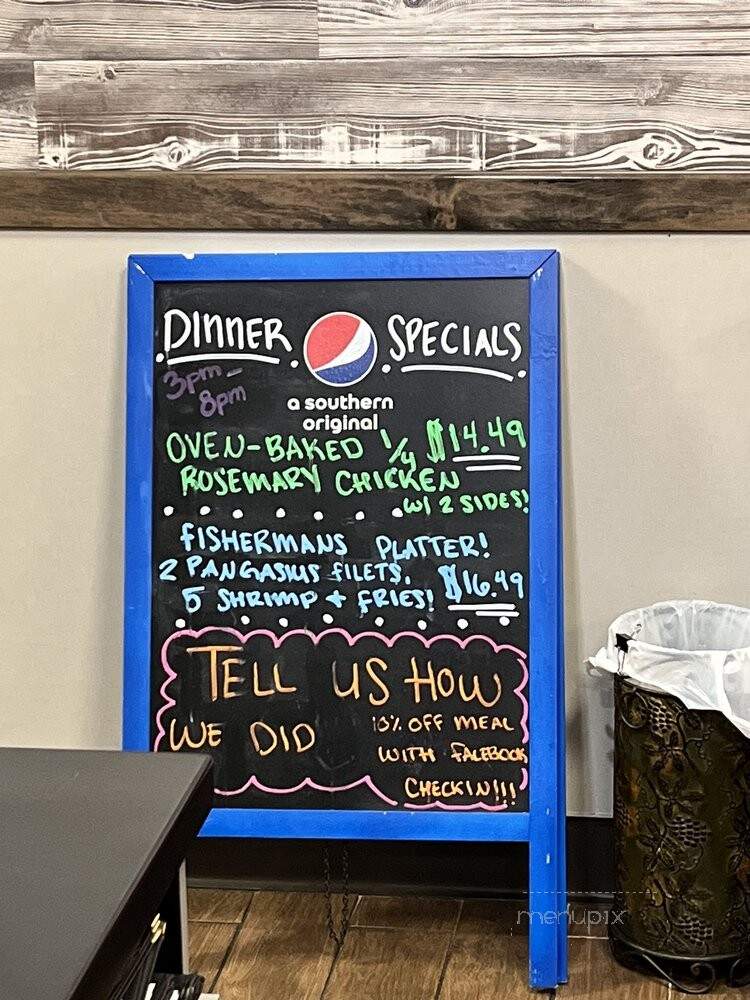 DINNER SPECIALS
3pm -
8pm
a southern
original
OVEN-BAKED 1/4 $14.49
ROSEMARY CHICKEN
W/ 2 SIDES!
FISHERMANS PLATTER!
2 PANGASIUS FILETS.
5 SHRIMP + FRIES! $16.49
TELL US HOW
WE DID
10% OFF MEAL
WITH FACEBOOK
CHECKIN!!!
menupix